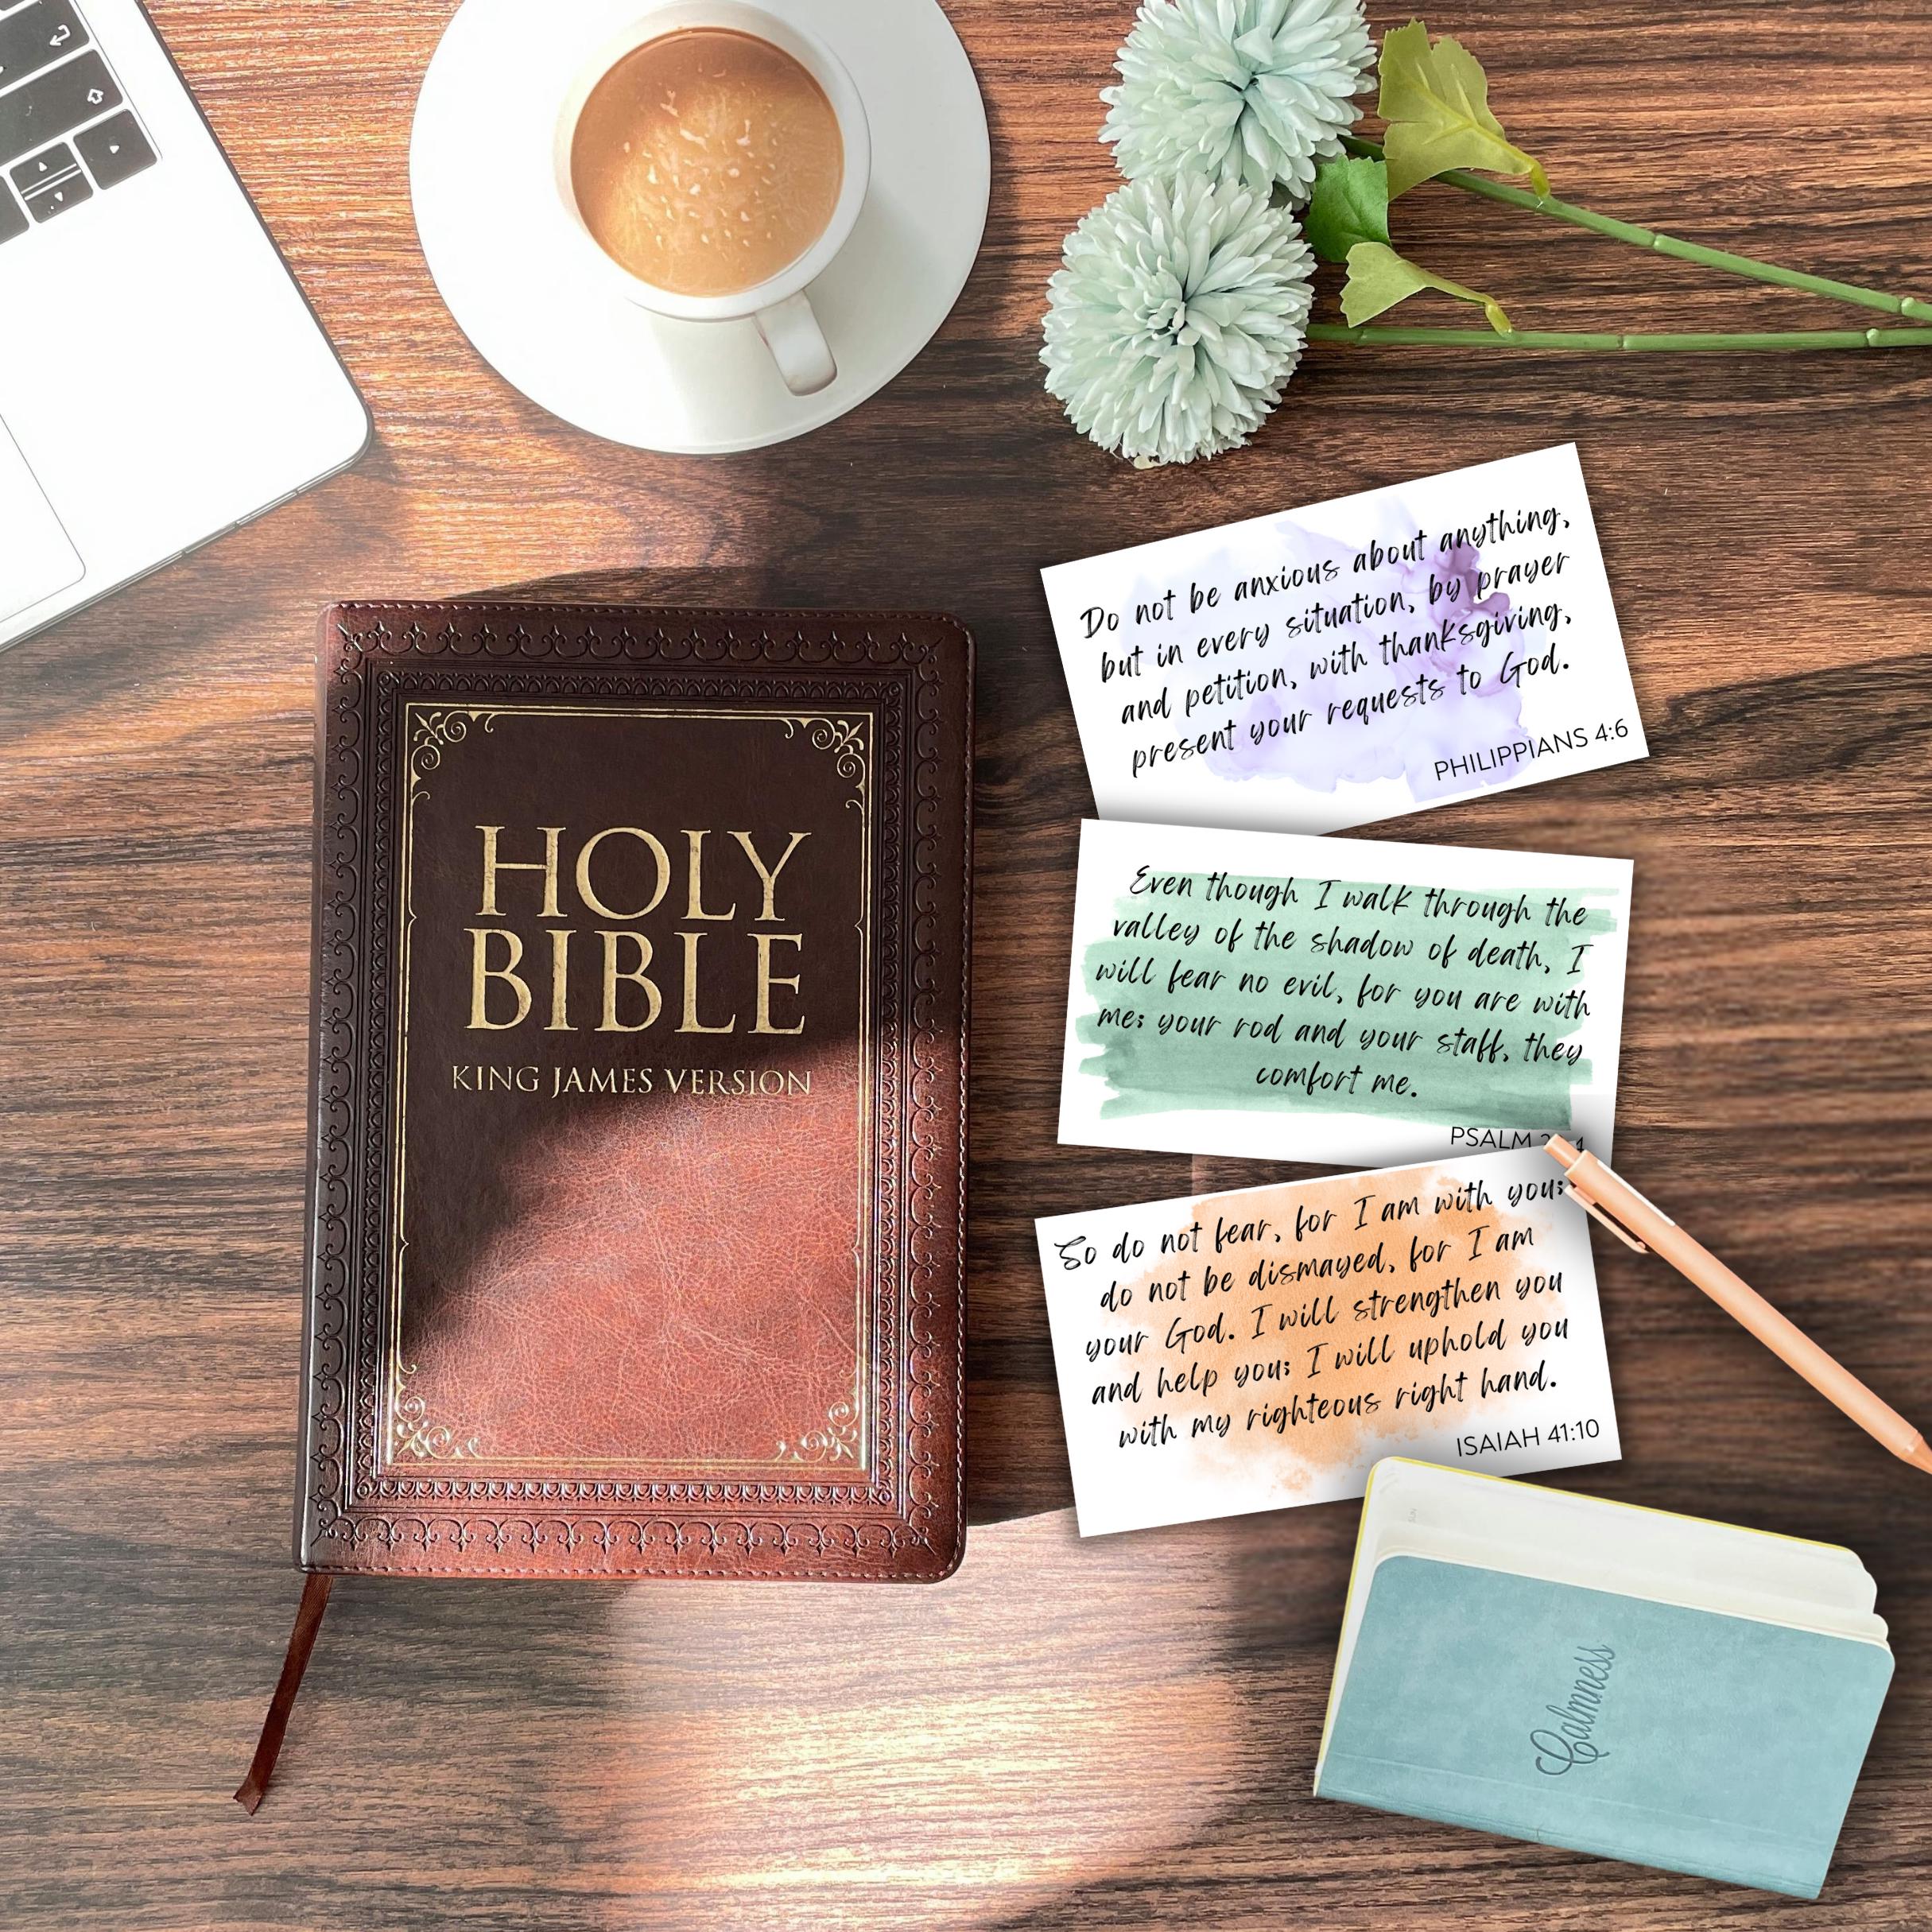 HOLY
BIBLE
KING JAMES VERSION
Do not be anxious about anything,
but in every situation, by prayer
and petition, with thanksgiving,
present your requests to God.
PHILIPPIANS 4:6
Even though I walk through the
valley of the shadow of death, I
will fear no evil, for you are with
me; your rod and your staff, they
comfort me.
PSALM
So do not fear, for I am with you;
do not be dismayed, for I am
your God. I will strengthen you
and help you; I will uphold you
with my righteous right hand.
ISAIAH 41:10
Calmness